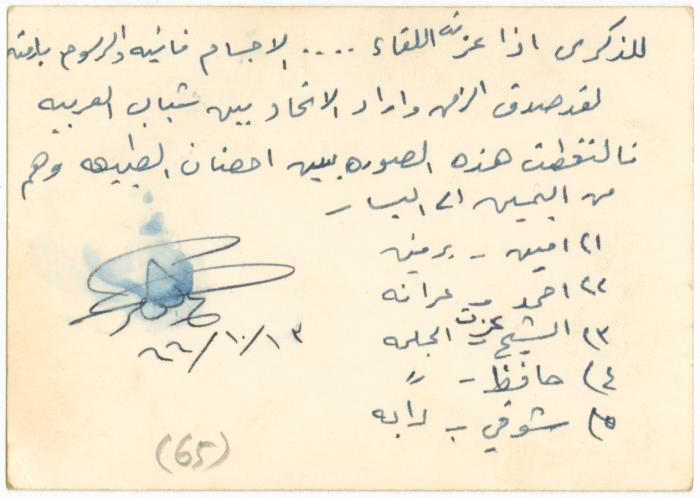 للذكرى اذا عزته اللقاء .... الاجسام فانيه والرسوم باقيه
لقد صدق الزمن واراد الاتحاد بين شباب العربيه
فالتقطت هذه الصوره بين احضان الطبيعه وهم
من اليمين الى اليسار
١) امين - برقين
٢) احمد - عرانه
٣) الشيخ عزت الجلمه
٤) حافظ - "
٥) شوقي - دابه
٦٦/١٠/١٣
(65)